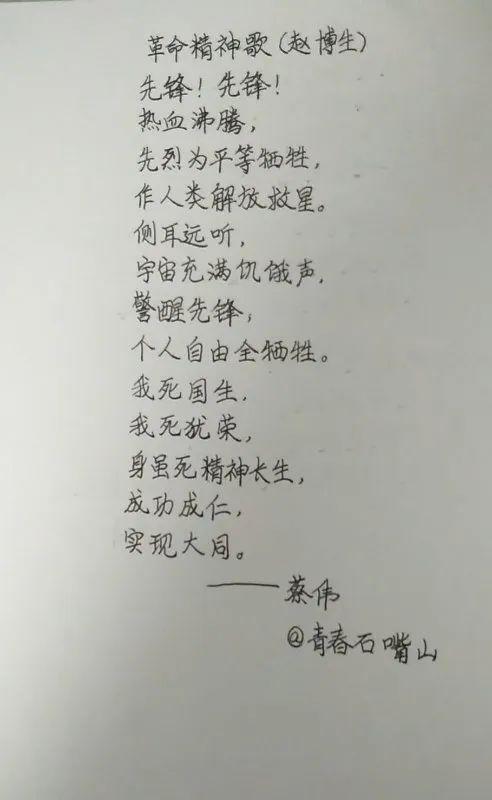 革命精神歌(赵博生)
先锋！先锋！
热血沸腾，
先烈为平等牺牲，
作人类解放救星。
侧耳远听，
宇宙充满饥饿声，
警醒先锋，
个人自由全牺牲。
我死国生，
我死犹荣，
身虽死精神长生，
成功成仁，
实现大同。
——蔡伟
@青春石嘴山